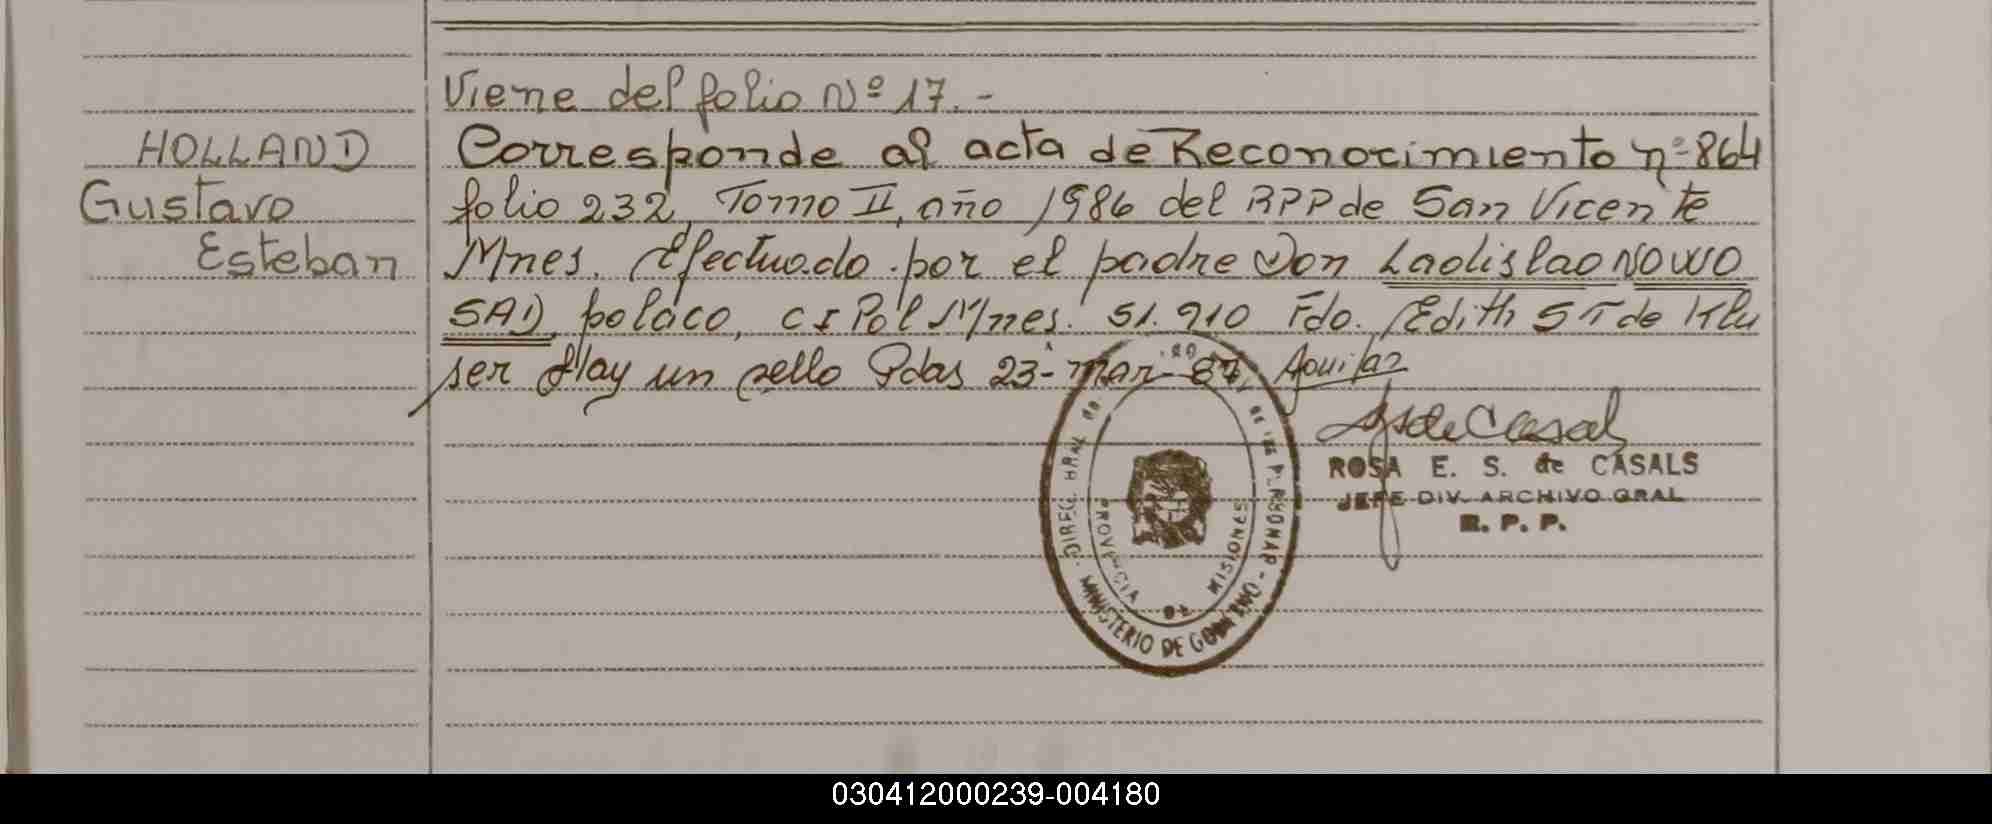 Viene del folio Nº 17.-
HOLLAND
Gustavo
Esteban
Corresponde al acta de Reconocimiento nº 864
folio 232, Tomo II, año 1986 del RPP de San Vicente
Mnes. Efectuado por el padre Don Ladislao NOWO
SAD, polaco, CI Pol Mnes. 51.910 Fdo. Edith ST de Klu
ser Hay un sello Pdas 23-mar-87, Aguilar
ROSA E. S. de CASALS
JEFE DIV. ARCHIVO GRAL
R. P. P.
PROVINCIA DE MISIONES
MINISTERIO DE GOBIERNO
030412000239-004180